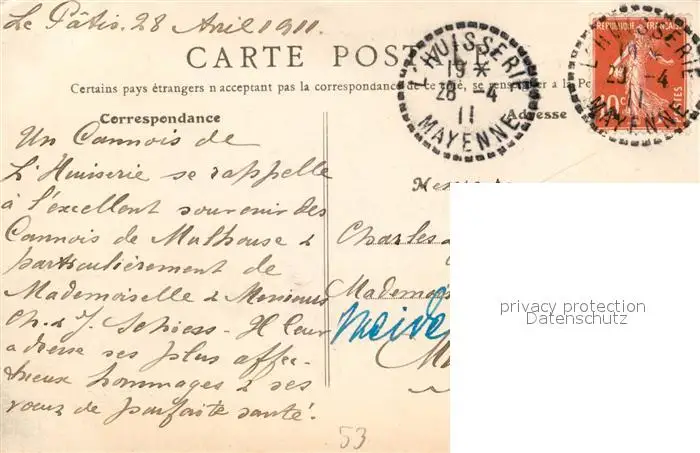 Le Pâtis. 28 Avril 1911.
CARTE POST
Certains pays étrangers n acceptant pas la correspondance de ce côté, se renseigner à la Po
Correspondance
Adresse
L'HUISSERIE
19 *
28 -4
11
MAYENNE
REPUBLIQUE FRANÇAISE
POSTES
L'HUISSERIE
19 *
28 -4
11
MAYENNE
Un Cannois de
L'Huisserie se rappelle
à l'excellent souvenir des
Cannois de Mulhouse &
particulièrement de
Mademoiselle & Monsieur
Ch. & J. Schiess - Il leur
adresse ses plus affec-
tueux hommages & ses
vœux de parfaite santé.
Charles
Mademoi
53
privacy protection
Datenschutz